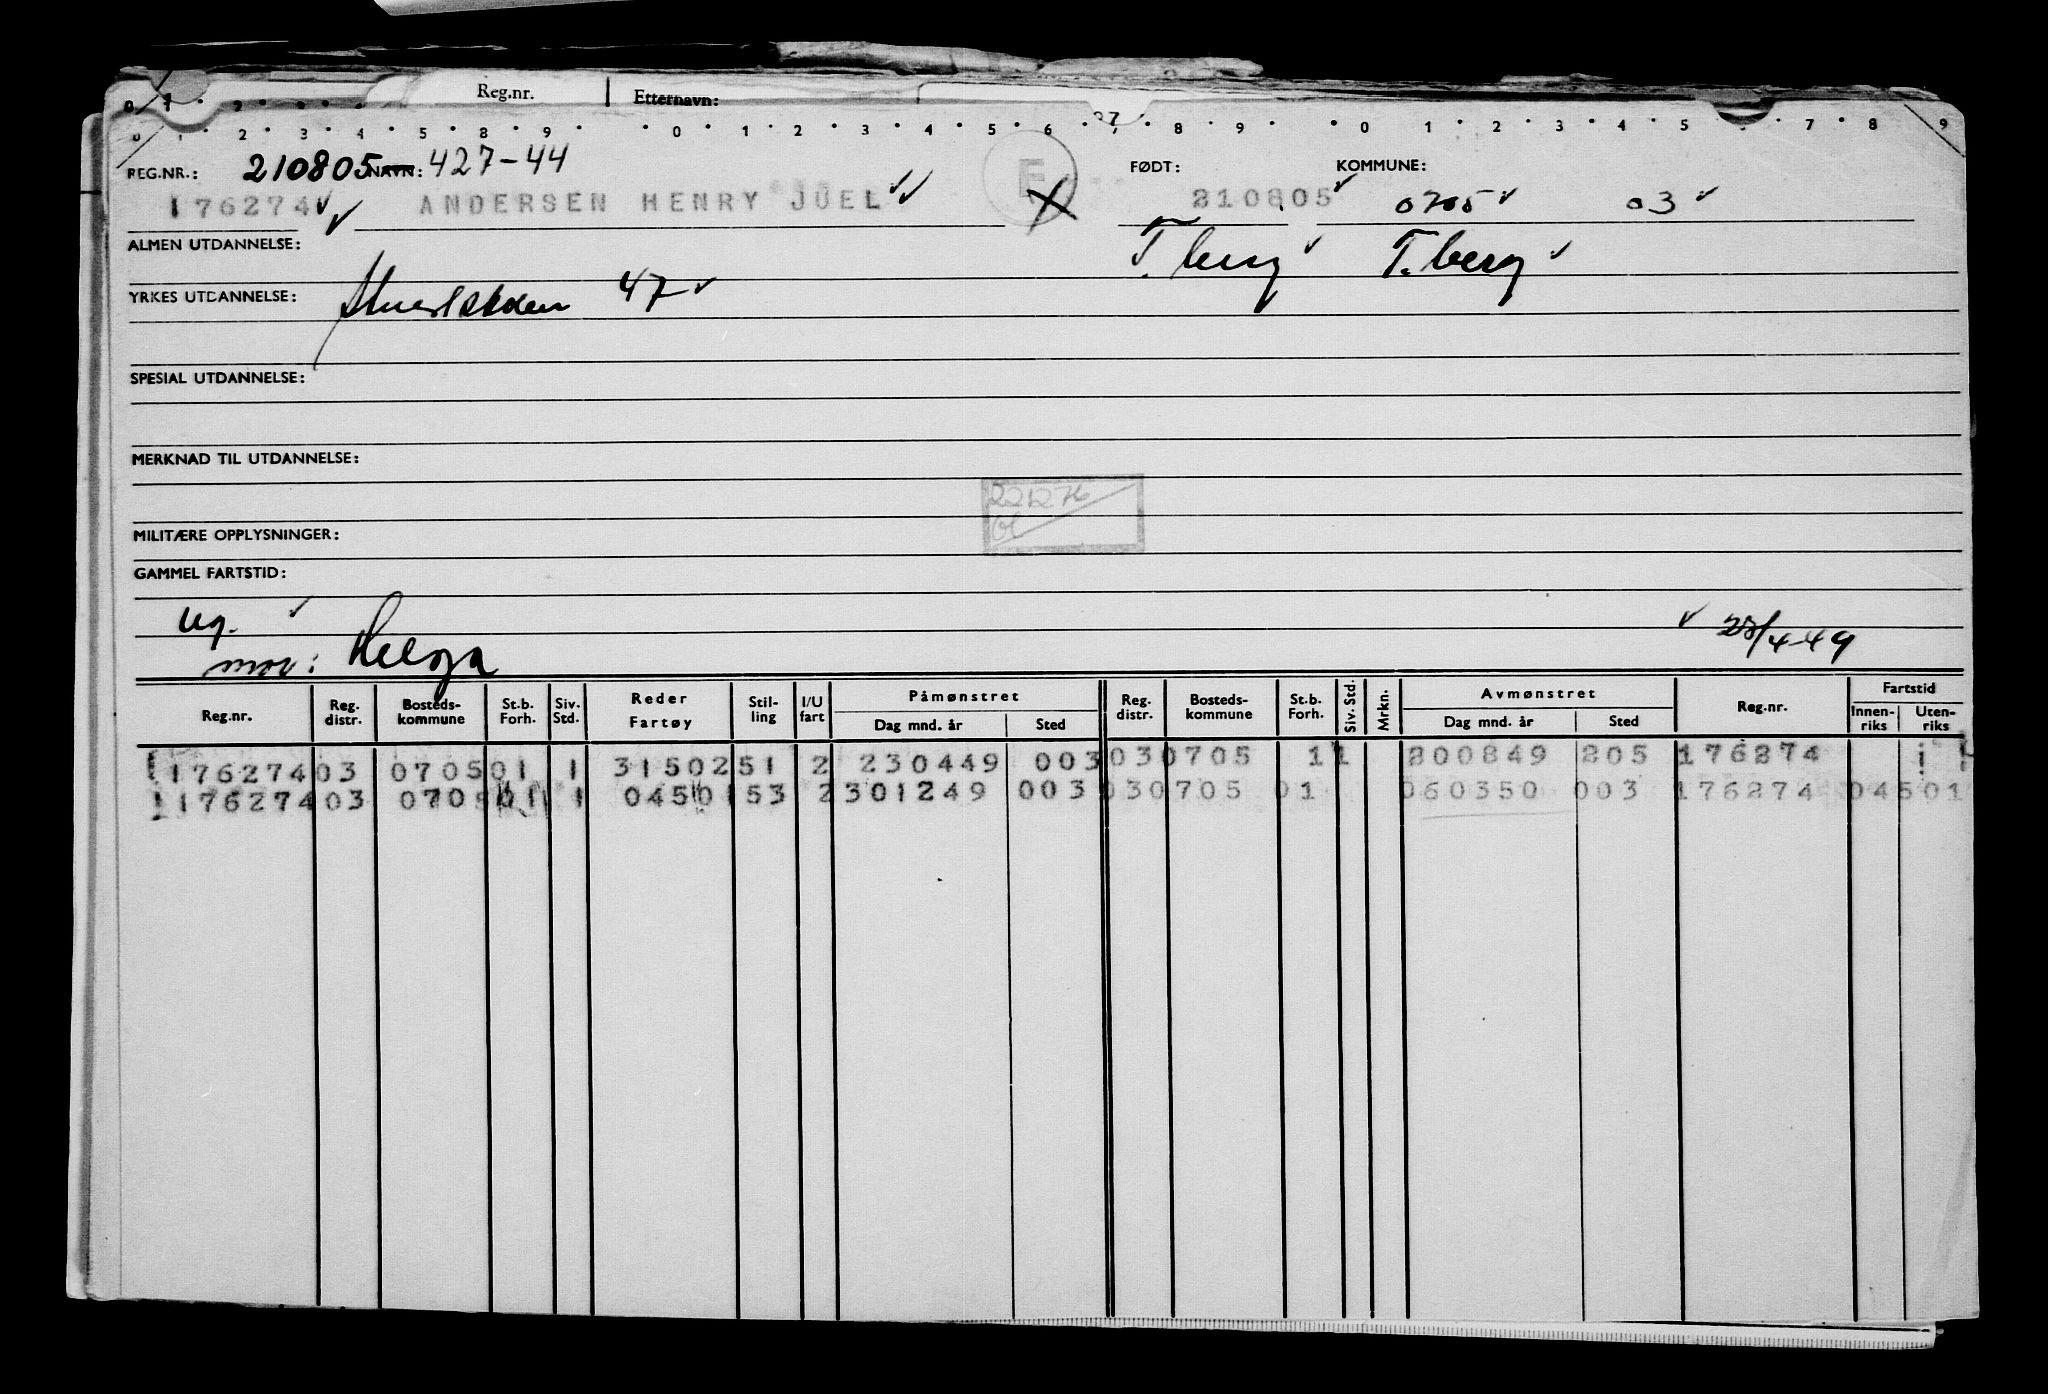 Reg.nr. Etternavn:
0 1 2 3 4 5 8 9 0 1 2 3 4 5 6 7 8 9 0 1 2 3 4 5 7 8 9
REG.NR.: 210805 NAVN: 427-44 FØDT: KOMMUNE:
176274 ANDERSEN HENRY JUEL E 210805 0705 03
ALMEN UTDANNELSE: T.berg T.berg
YRKES UTDANNELSE: 47
SPESIAL UTDANNELSE:
MERKNAD TIL UTDANNELSE:
221276
MILITÆRE OPPLYSNINGER:
GAMMEL FARTSTID:
ug. 23/4-49
mor: Helga
Reg.nr. Reg. distr. Bosteds-kommune St.b. Forh. Siv. Std. Reder Fartøy Stil-ling I/U fart Påmønstret Dag mnd. år Sted Reg. distr. Bosteds-kommune St.b. Forh. Siv. Std. Mrkn. Avmønstret Dag mnd. år Sted Reg.nr. Fartstid Innen-riks Uten-riks
176274 03 0705 01 1 31502 51 2 230449 003 03 0705 1 1 200849 205 176274
176274 03 0705 01 1 04501 53 2 301249 003 03 0705 01 060350 003 176274 04501